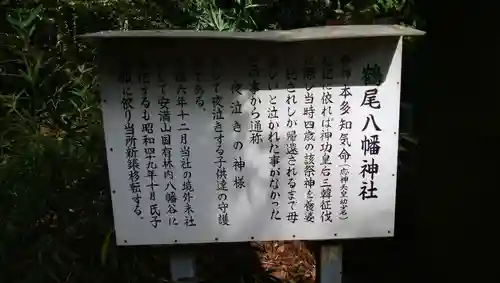 鶴尾八幡神社
祭神本多知気命(応神天皇幼名)
記に依れば神功皇后三韓征伐
に際し当時四歳の該祭神を養婆
記されしが帰還されるまで母
しいと泣かれた事がなかった
事から通称
夜泣きの神様
して夜泣きする子供達の守護
である。
六年十二月当社の境外末社
して安満山国有林内八幡谷に
するも昭和四九年十月氏子
に依り当所新築移転する。